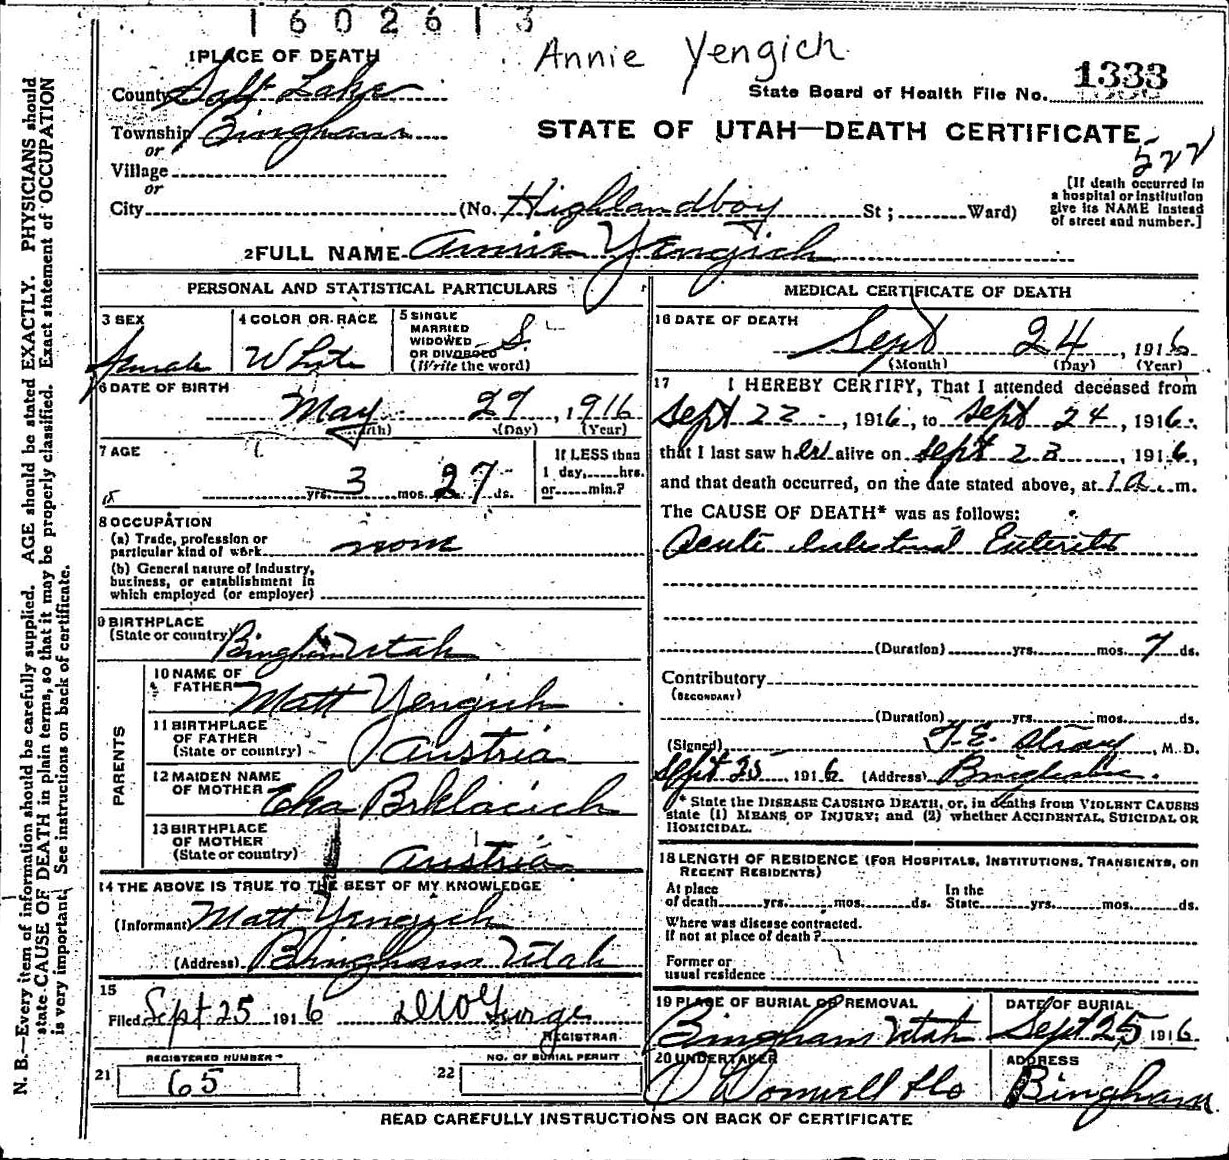 1602613
Annie Yengich
1 PLACE OF DEATH
County Salt Lake
State Board of Health File No. 1333
Township Bingham
or
STATE OF UTAH—DEATH CERTIFICATE
522
Village
or
City (No. Highlandboy St; Ward)
[If death occurred in
a hospital or institution
give its NAME instead
of street and number.]
2 FULL NAME Annie Yengich
PERSONAL AND STATISTICAL PARTICULARS
3 SEX
female
4 COLOR OR RACE
White
5 SINGLE
MARRIED
WIDOWED
OR DIVORCED
(Write the word)
S.
6 DATE OF BIRTH
May 27, 1916
(Day) (Year)
7 AGE
yrs. 3 mos. 27 ds.
If LESS than
1 day,.....hrs.
or.....min.?
8 OCCUPATION
(a) Trade, profession or
particular kind of work none
(b) General nature of Industry,
business, or establishment in
which employed (or employer)
9 BIRTHPLACE
(State or country) Bingham Utah
PARENTS
10 NAME OF
FATHER Matt Yengich
11 BIRTHPLACE
OF FATHER
(State or country) Austria
12 MAIDEN NAME
OF MOTHER Eka Brklacich
13 BIRTHPLACE
OF MOTHER
(State or country) Austria
14 THE ABOVE IS TRUE TO THE BEST OF MY KNOWLEDGE
(Informant) Matt Yengich
(Address) Bingham Utah
15
Filed Sept 25 1916
REGISTRAR
REGISTERED NUMBER
21 65
NO. OF BURIAL PERMIT
22
MEDICAL CERTIFICATE OF DEATH
16 DATE OF DEATH
Sept 24, 1916
(Month) (Day) (Year)
17 I HEREBY CERTIFY, That I attended deceased from
Sept 22, 1916, to Sept 24, 1916.
that I last saw her alive on Sept 23, 1916,
and that death occurred, on the date stated above, at 1 a. m.
The CAUSE OF DEATH* was as follows:
Acute Intestinal Enteritis
(Duration) yrs. mos. 7 ds.
Contributory
(SECONDARY)
(Duration) yrs. mos. ds.
(Signed) F.E. Straup, M. D.
Sept 25 1916 (Address) Bingham.
* State the DISEASE CAUSING DEATH, or, in deaths from VIOLENT CAUSES
state (1) MEANS OF INJURY; and (2) whether ACCIDENTAL, SUICIDAL OR
HOMICIDAL.
18 LENGTH OF RESIDENCE (FOR HOSPITALS, INSTITUTIONS, TRANSIENTS, OR
RECENT RESIDENTS)
At place
of death.....yrs......mos......ds.
In the
State.....yrs......mos......ds.
Where was disease contracted.
If not at place of death?
Former or
usual residence
19 PLACE OF BURIAL OR REMOVAL
Bingham Utah
DATE OF BURIAL
Sept 25 1916.
20 UNDERTAKER
O'Donnell & Co
ADDRESS
Bingham
READ CAREFULLY INSTRUCTIONS ON BACK OF CERTIFICATE
N. B.—Every item of information should be carefully supplied. AGE should be stated EXACTLY. PHYSICIANS should
state CAUSE OF DEATH in plain terms, so that it may be properly classified. Exact statement of OCCUPATION
is very important. See instructions on back of certificate.